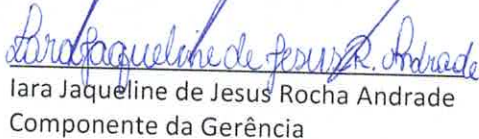 Iara Jaqueline de Jesus R. Andrade
Iara Jaqueline de Jesus Rocha Andrade
Componente da Gerência